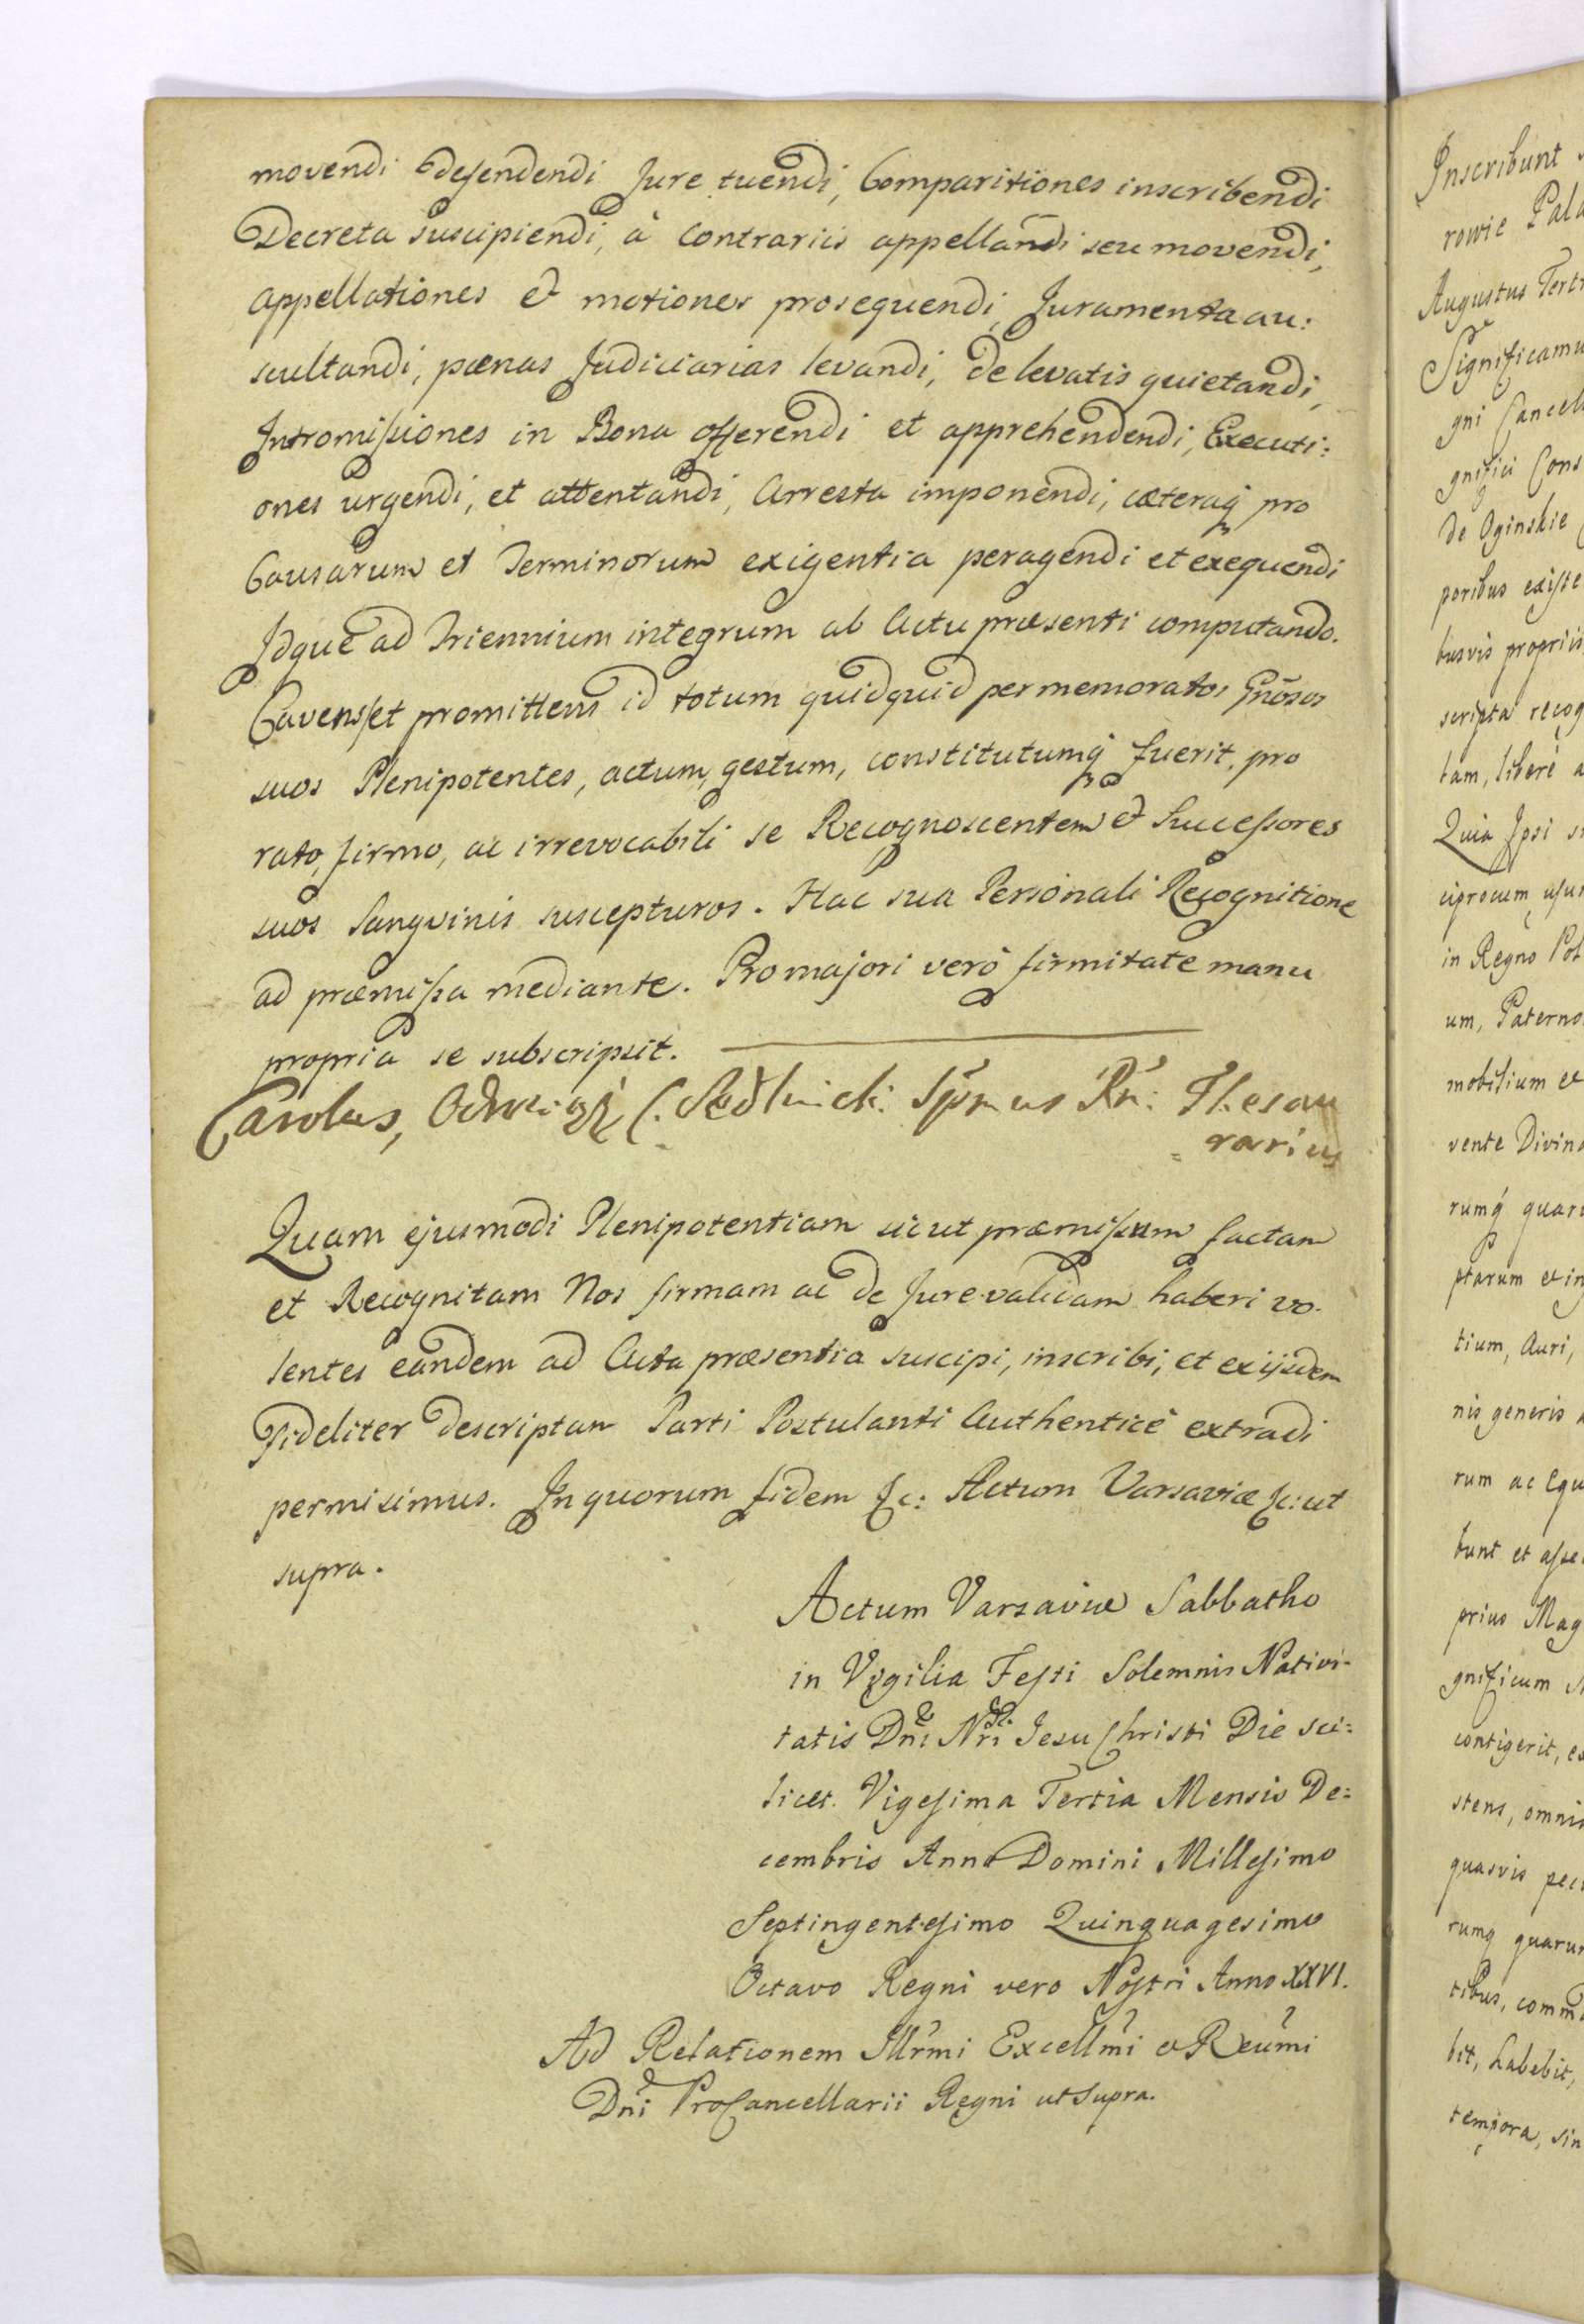 movendi defendendi Jure tuendi, Comparitiones inscribendi
Decreta suscipiendi, à Contrariis appellandi seu movendi,
appellationes et motiones prosequendi, Juramenta au:
scultandi, pœnas Judiciarias levandi, de levatis quietandi,
Intromissiones in Bona offerendi et apprehendendi, Executi:
ones urgendi, et attentandi, Arresta imponendi, cæteraq pro
Causarum et Terminorum exigentia peragendi et exequendi
Idque ad Triennium integrum ab Actu præsenti computando.
Cavens et promittens id totum quidquid per memoratos Gñosos
suos Plenipotentes, actum, gestum, constitutumq fuerit, pro
rato, firmo, ac irrevocabili se Recognoscentem et Successores
suos Sangvinis suscepturos. Hac sua Personali Recognitione
ad præmissa mediante. Pro majori verò firmitate manu
propria se subscripsit.
Carolus, C. Sedlnicki Spmus Rñ: Thesau
= rarius
Quam ejusmodi Plenipotentiam sicut præmissum factam
et Recognitam Nos firmam ac de Jure validam haberi vo-
lentes eandem ad Acta præsentia suscipi, inscribi, et ex ijsdem
Fideliter descriptam Parti Postulanti Authenticè extradi
permisimus. In quorum fidem &c: Actum Varsaviæ &c: ut
supra.
Actum Varsaviæ Sabbatho
in Vigilia Festi Solemnis Nativi-
tatis Dñi Nri Jesu Christi Die sci:
licet. Vigesima Tertia Mensis De:
cembris Anno Domini Millesimo
Septingentesimo Quinquagesimo
Octavo Regni vero Nostri Anno XXVI.
Ad Relationem Illrmi Excellmi et Reũmi
Dñi ProCancellarii Regni ut Supra.
Inscribunt
rowie Pala
Augustus Terti
Significamu
gni Cancell
gnifici Cons
de Oginskie
poribus existe
busvis propriis
scripta recog
tam, liberè a
Quia Ipsi
ciprocum usu
in Regno Pol
um, Paterno
mobilium et
vente Divina
rumq quaru
ptarum et in
tium, Auri,
nis generis
rum ac Equ
bunt et asse
prius Mag
gnificum
contigerit, e
stens, omni
quasvis pec
rumq quaru
tibus, comm
bit, habebit,
tempora, sin